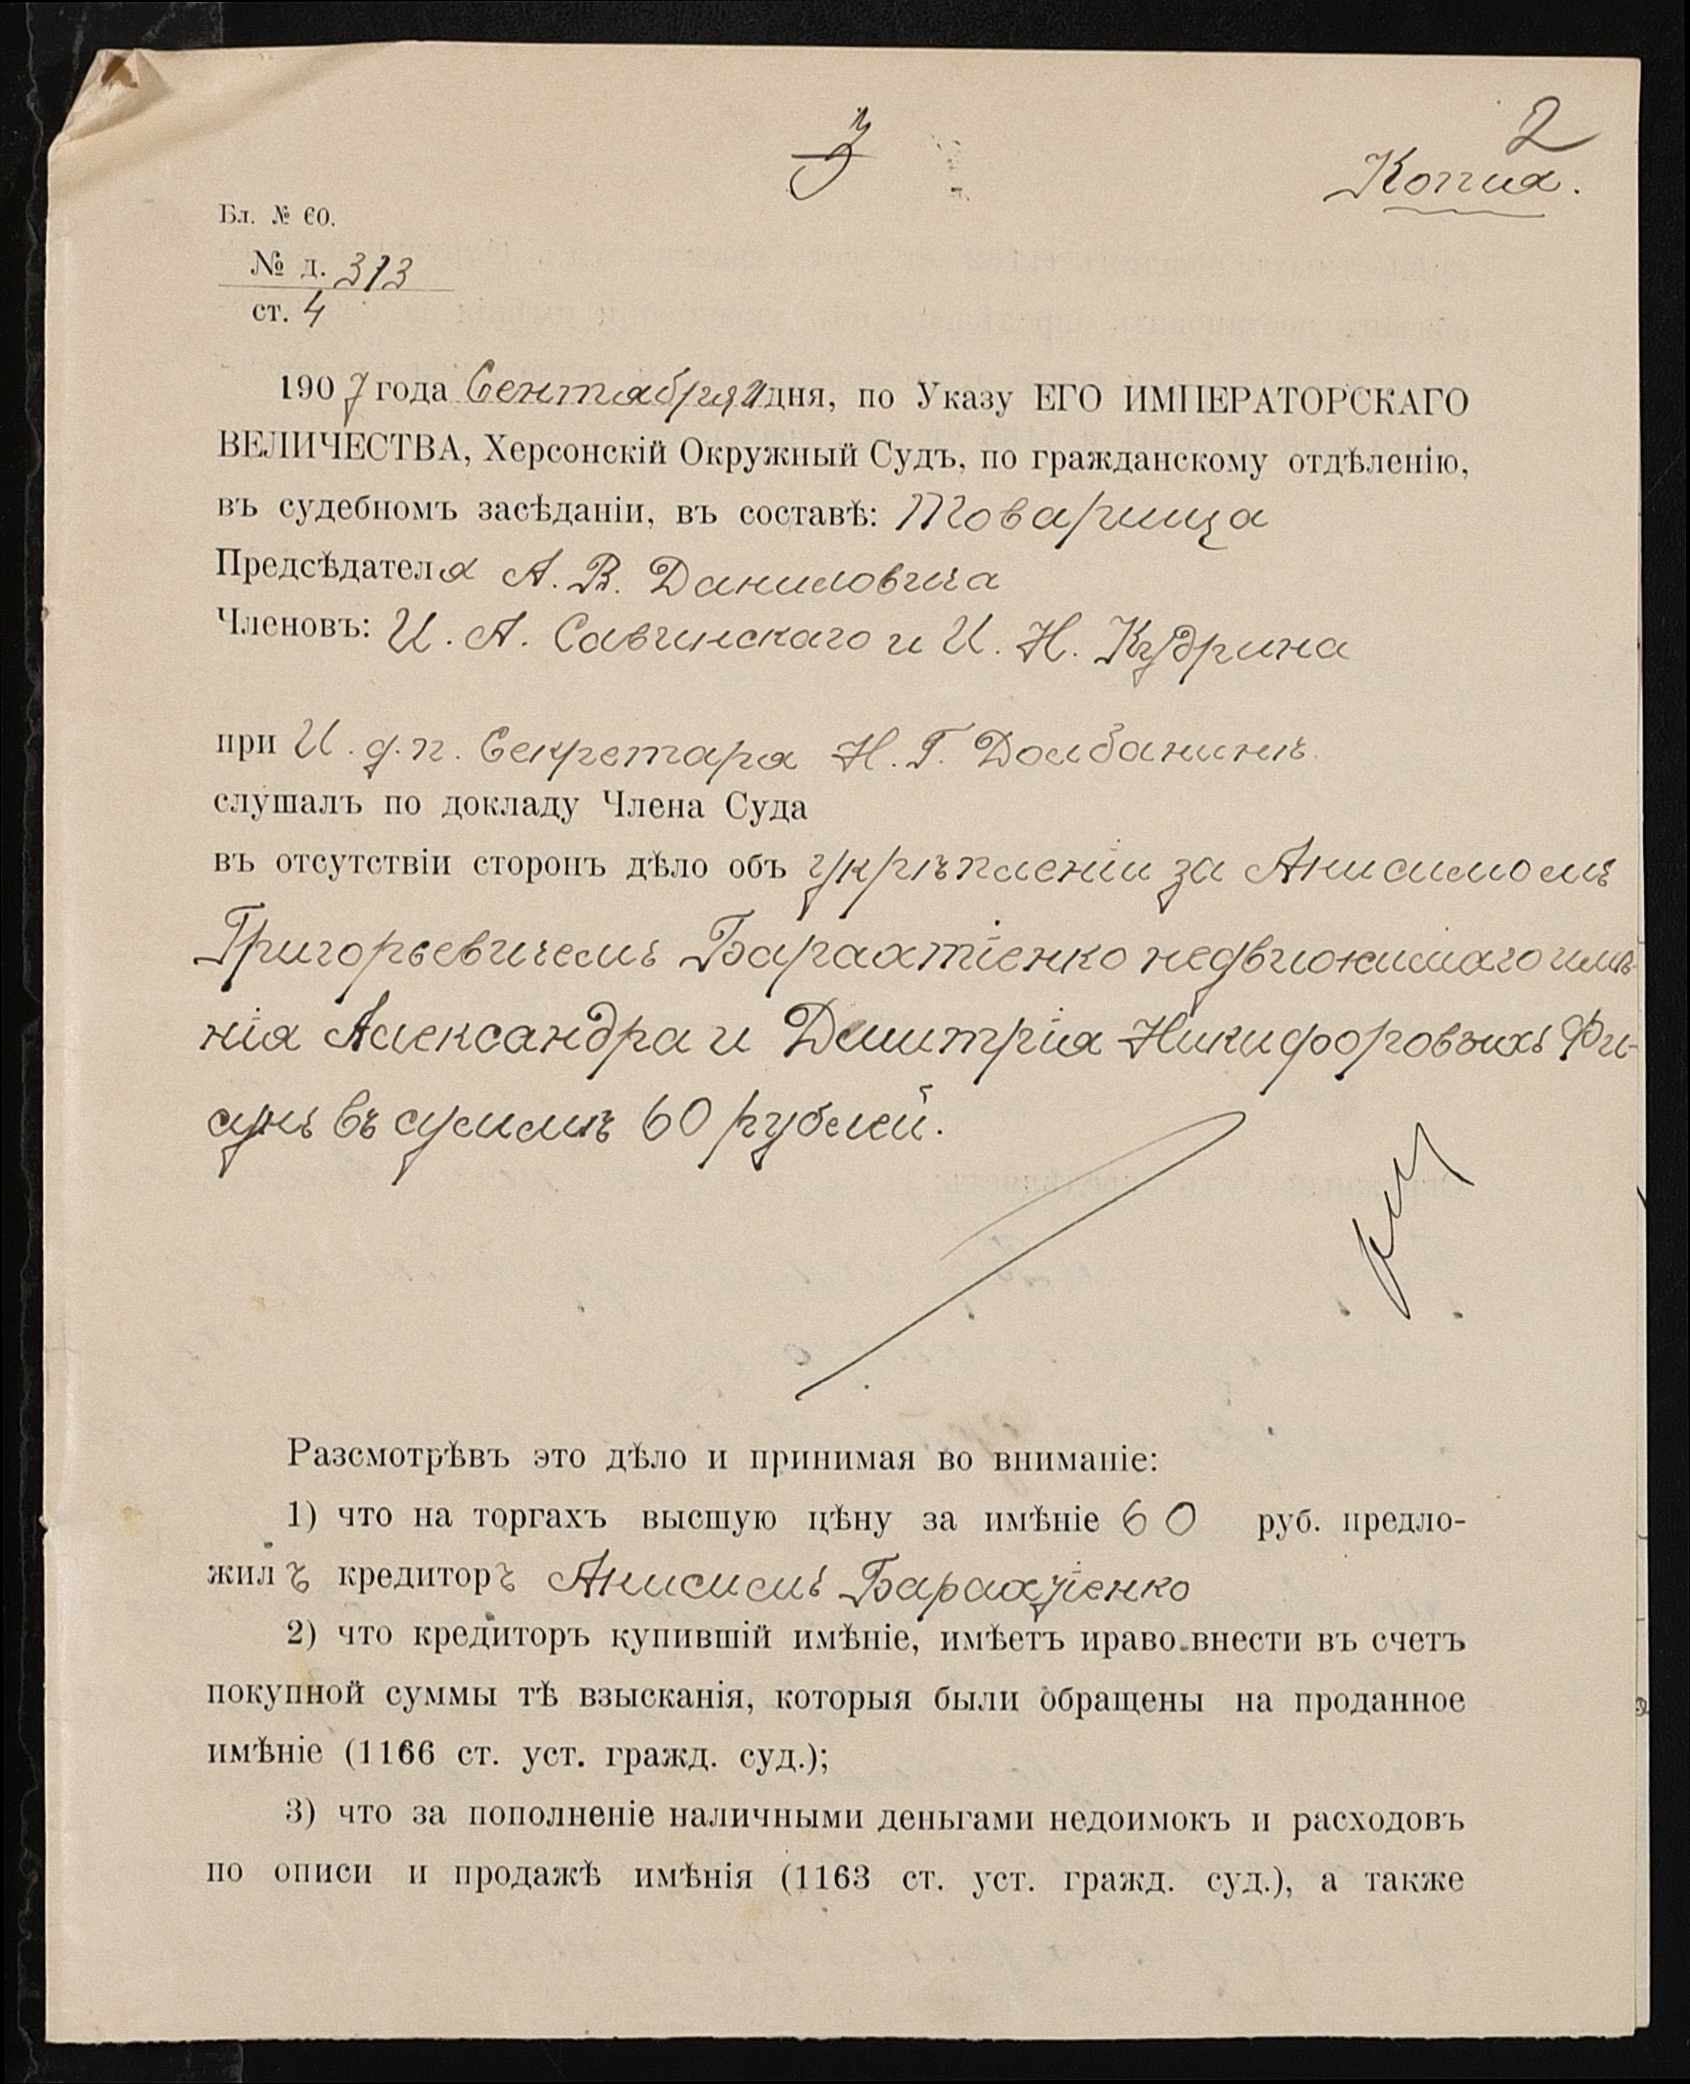 3
2
Копия.
Бл. № 60.
№ д. 313
ст. 4
1907 года Сентября 21 дня, по Указу ЕГО ИМПЕРАТОРСКАГО
ВЕЛИЧЕСТВА, Херсонскій Окружный Судъ, по гражданскому отдѣленію,
въ судебномъ засѣданіи, въ составѣ: Товарища
Предсѣдателя А. В. Даниловича
Членовъ: И. А. Савчинскаго и И. Н. Кудрина
при И. д. п. Секретаря Н. Г. Долбанинѣ
слушалъ по докладу Члена Суда
въ отсутствіи сторонъ дѣло объ укрѣпленіи за Анисимомъ
Григорьевичемъ Барахтіенко недвижимаго имѣ-
нія Александра и Димитрія Никифоровыхъ Фи-
сунъ въ суммѣ 60 рублей.
Разсмотрѣвъ это дѣло и принимая во вниманіе:
1) что на торгахъ высшую цѣну за имѣніе 60 руб. предло-
жилъ кредиторъ Анисимъ Барахтіенко
2) что кредиторъ купившій имѣніе, имѣетъ право внести въ счетъ
покупной суммы тѣ взысканія, которыя были обращены на проданное
имѣніе (1166 ст. уст. гражд. суд.);
3) что за пополненіе наличными деньгами недоимокъ и расходовъ
по описи и продажѣ имѣнія (1163 ст. уст. гражд. суд.), а также